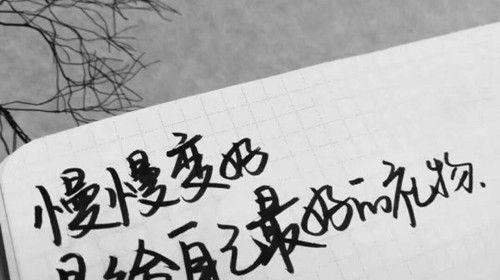 慢慢变好
是给自己最好的礼物.